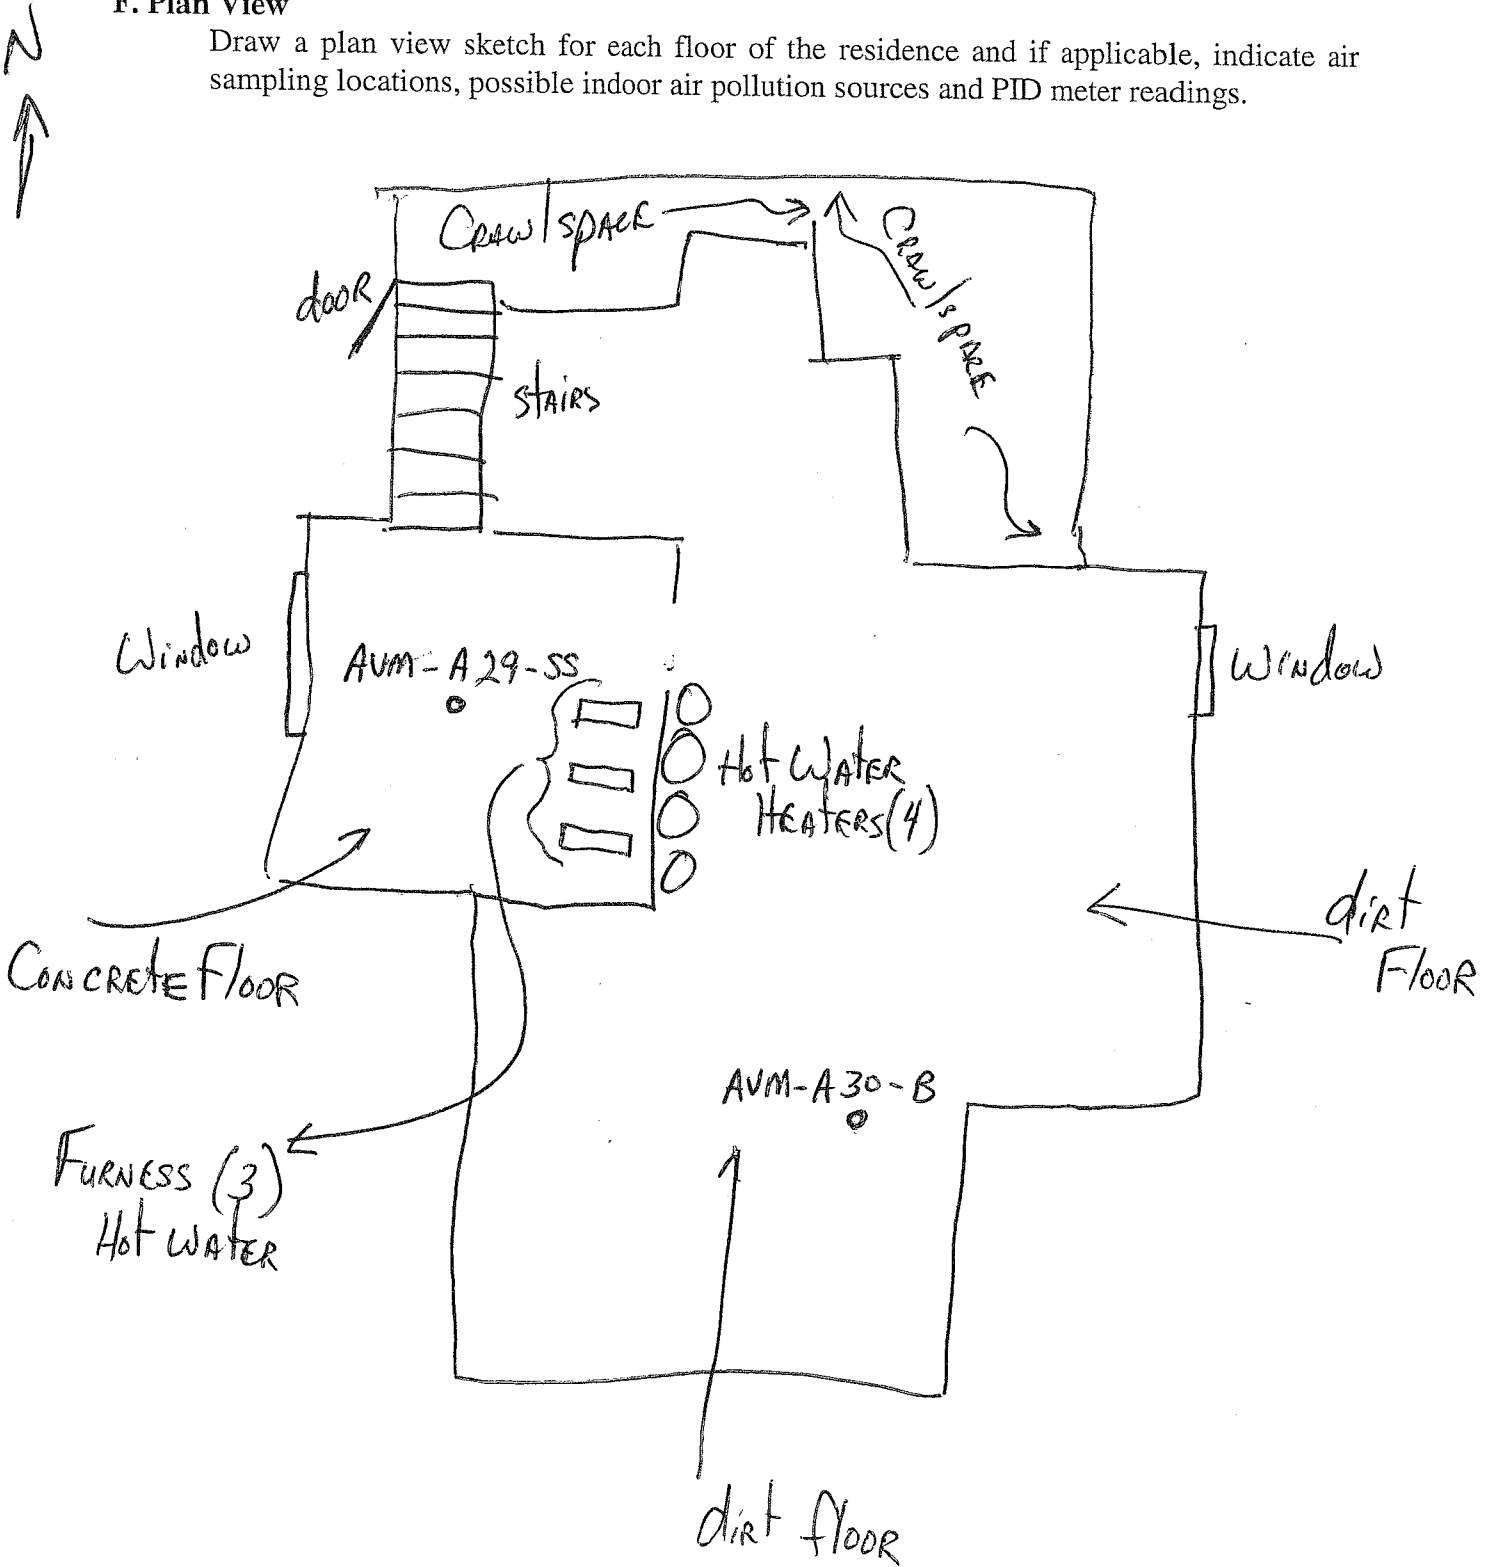 F. Plan View
Draw a plan view sketch for each floor of the residence and if applicable, indicate air
sampling locations, possible indoor air pollution sources and PID meter readings.
N
Crawlspace
Crawlspace
door
stairs
Window
AVM-A29-SS
Window
Hot Water
Heaters (4)
dirt
Floor
Concrete Floor
AVM-A30-B
Furness (3)
Hot Water
dirt floor